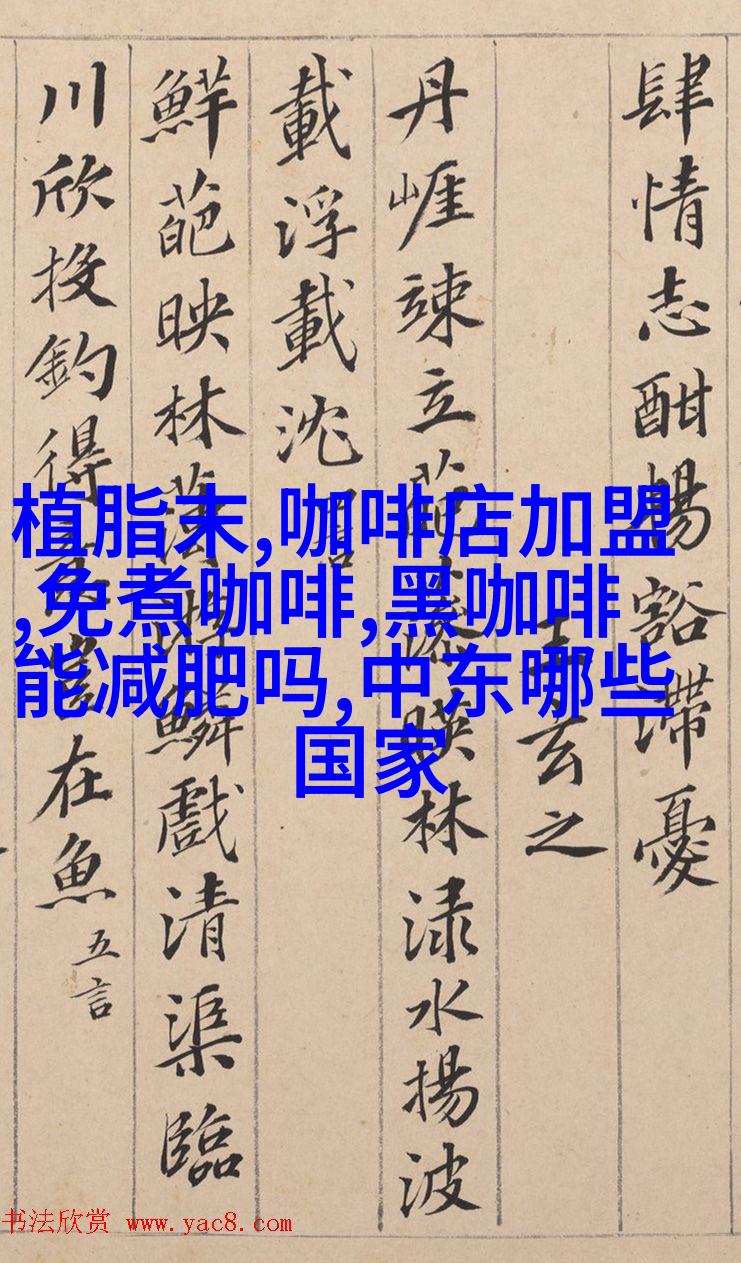 肆情志酣暢豁滯憂
王玄之
丹崖竦立葩藻暎林淥水揚波
載浮載沈
鮮葩映林薄游鱗戲清渠臨
川欣投釣得意豈在魚 五言
植脂末,咖啡店加盟
,免煮咖啡,黑咖啡
能减肥吗,中东哪些
国家
书法欣赏 www.yac8.com